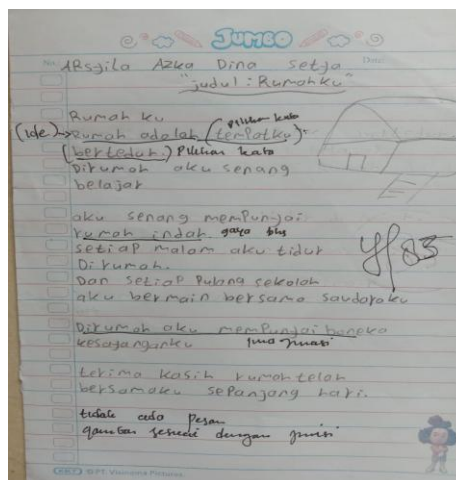 JUMBO
No: ARsyila Azka Dina Setya Date:
"judul: Rumahku"
Rumah ku Pilihan kata
(ide) → Rumah adalah (tempatku)
(berteduh) Pilihan kata
Dirumah aku senang
belajar
aku senang memPunyai
rumah indah gaya bhs
setiap malam aku tidur
Dirumah.
Dan setiap Pulang sekolah
aku bermain bersama saudaraku
83
Dirumah aku memPunyai boneka
kesayanganku
terima kasih rumah telah
bersamaku sepanjang hari.
tidak ada pesan
gambar sesuai dengan puisi
© PT. Visinema Pictures